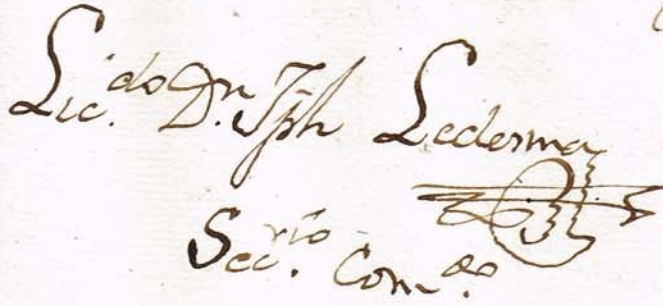 Lic.do Dn. Jph Ledesma
Sec.rio Com.do